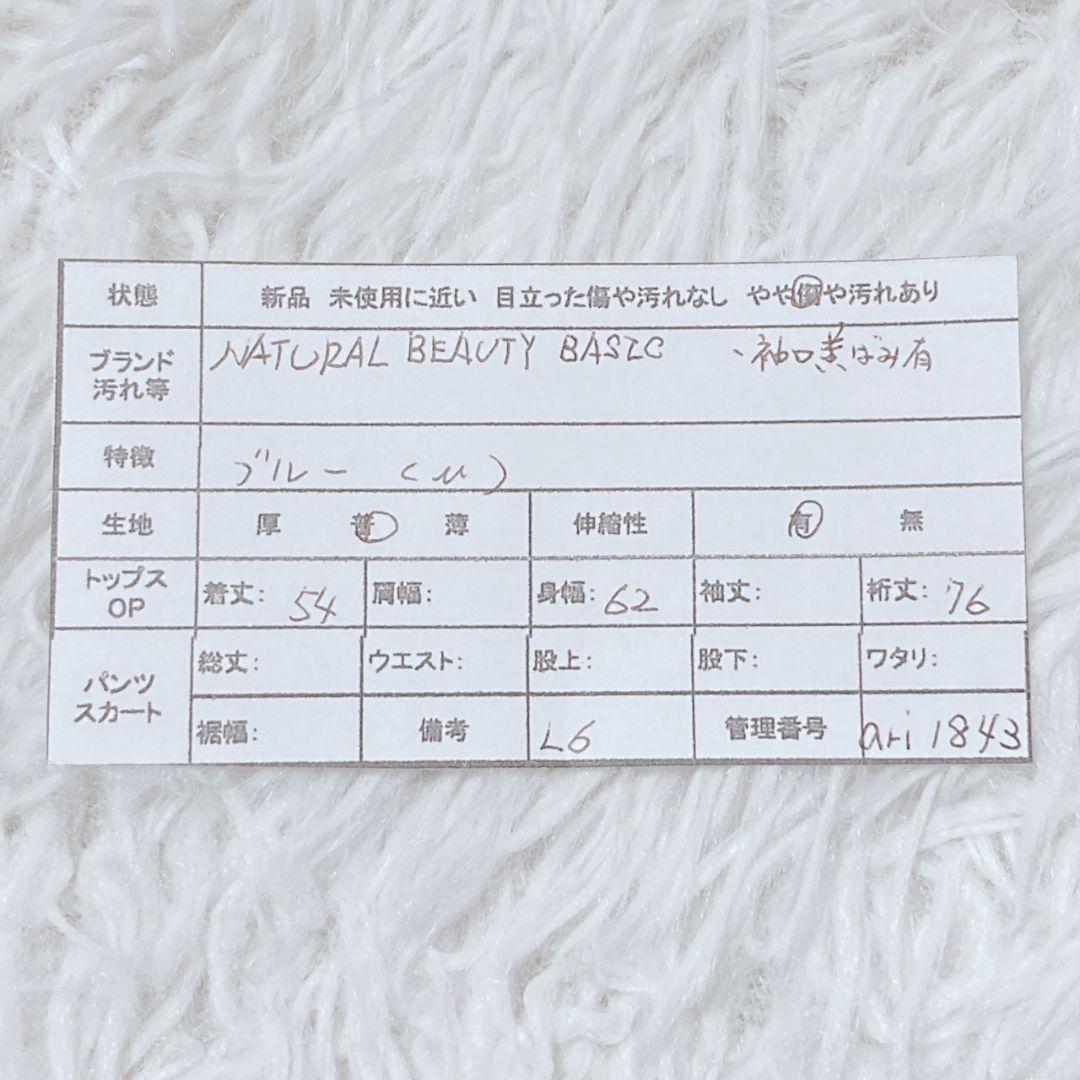 状態 新品 未使用に近い 目立った傷や汚れなし やや傷や汚れあり
ブランド
汚れ等
NATURAL BEAUTY BASIC 、袖口黄ばみ有
特徴 ブルー (M)
生地 厚 普 薄 伸縮性 有 無
トップス
OP
着丈: 54 肩幅: 身幅: 62 袖丈: 裄丈: 76
パンツ
スカート
総丈: ウエスト: 股上: 股下: ワタリ:
裾幅: 備考 L6 管理番号 ari 1843